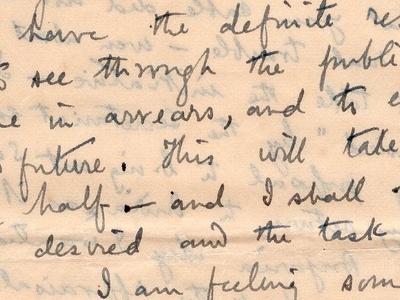 have the definite res
see through the publi
e in arrears, and to e
future. This will take
half — and I shall
desired and the task
I am feeling som